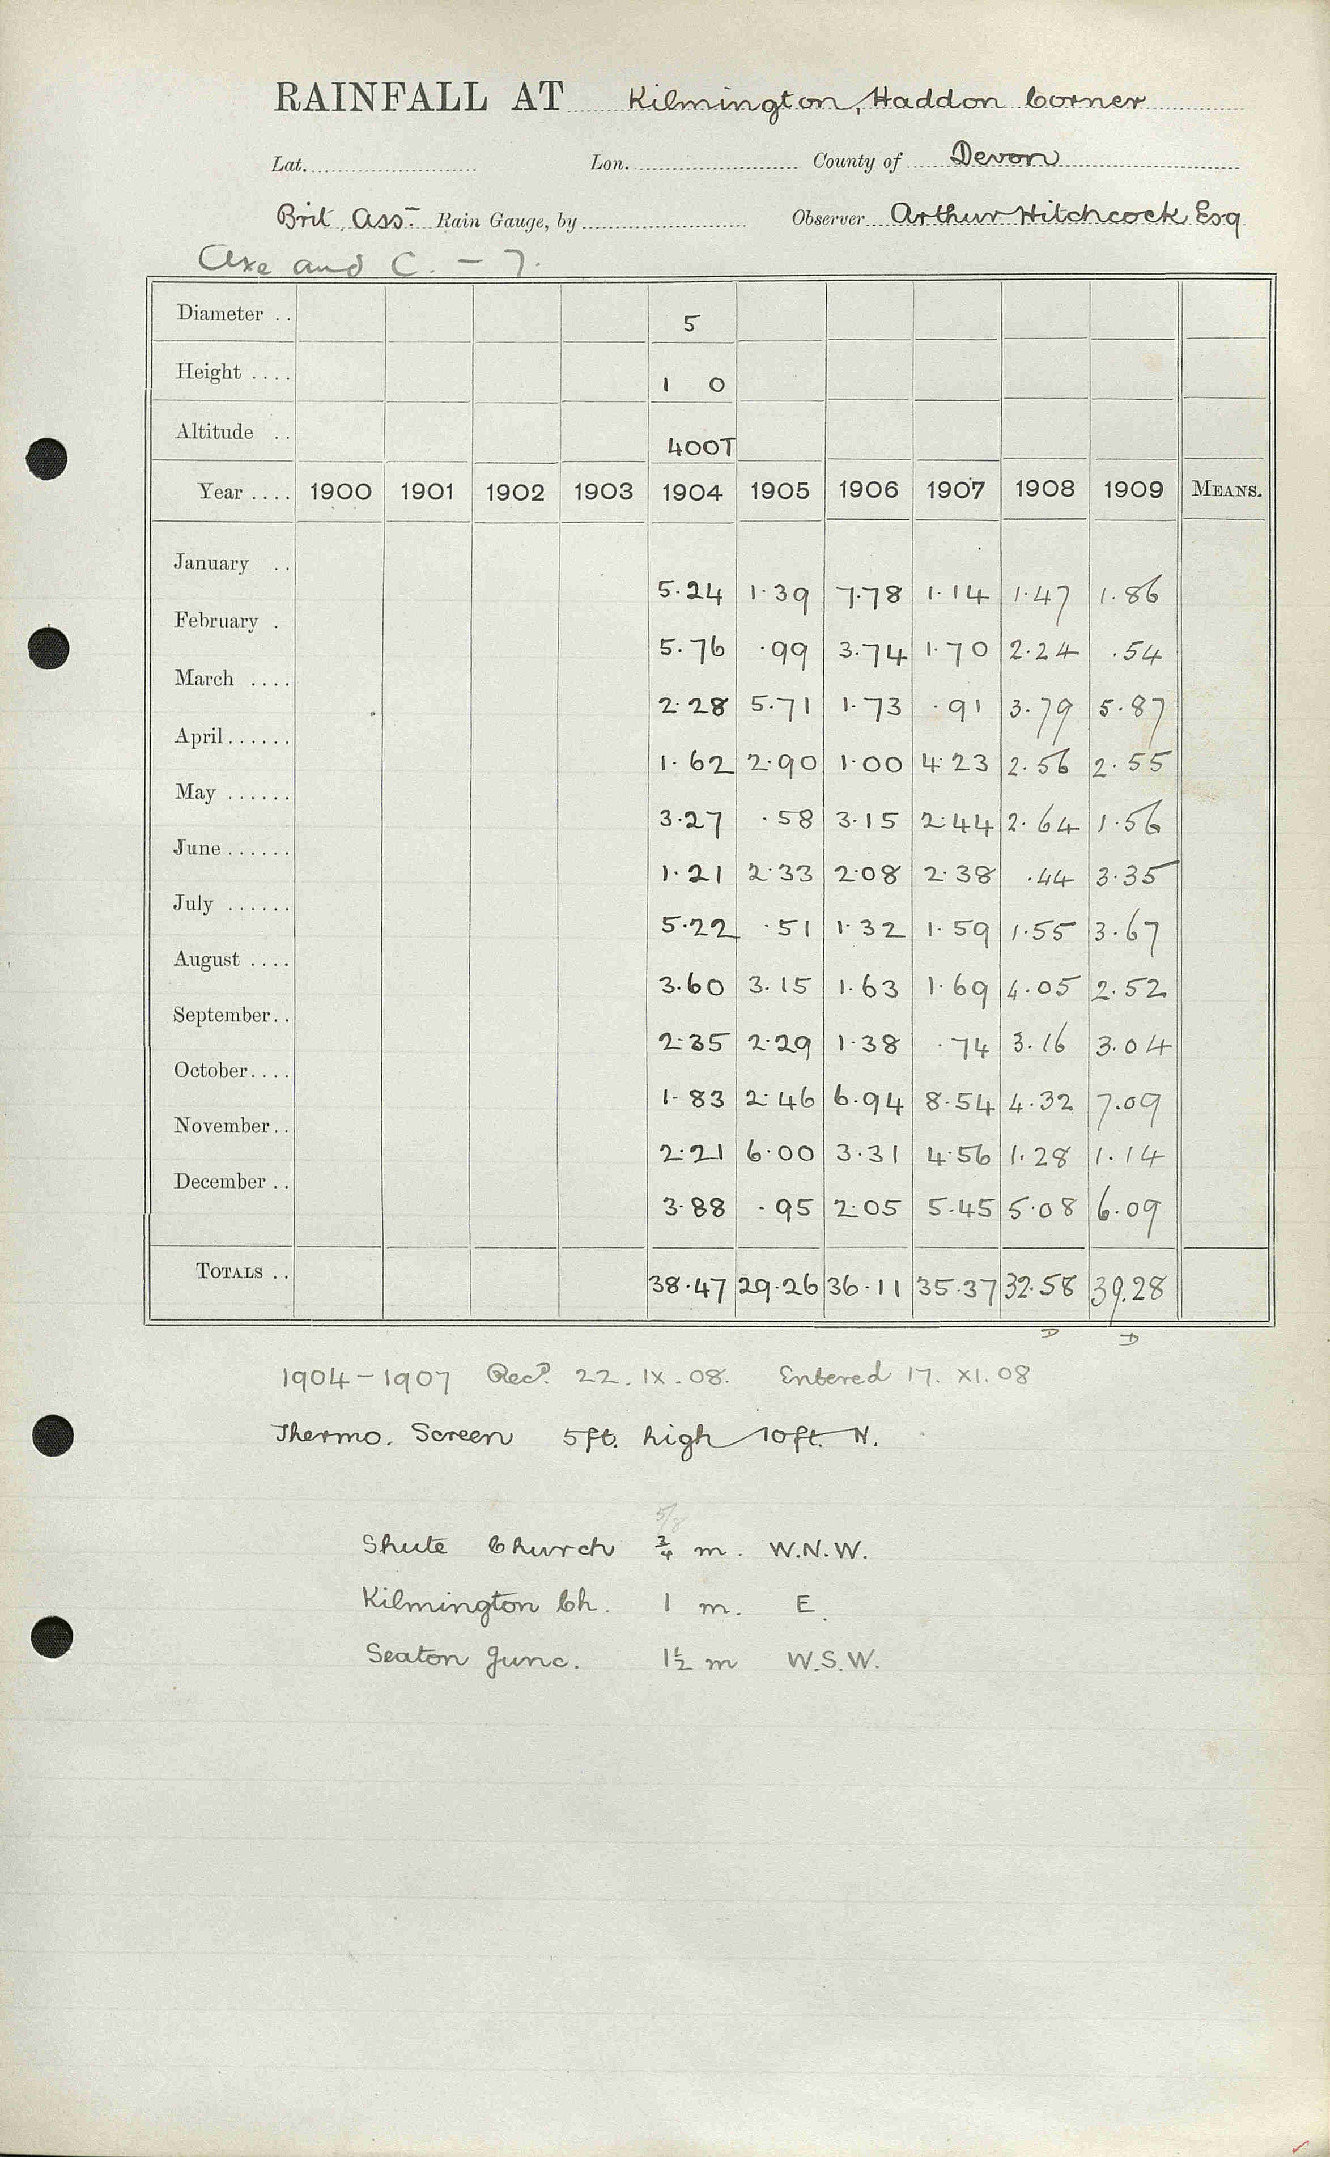 RAINFALL AT Kilmington, Haddon Corner
Lat. Lon. County of Devon
Brit. Assn. Rain Gauge, by Observer Arthur Hitchcock Esq
Axe and C. - 7.
Diameter .. 5
Height .... 1 0
Altitude .. 400T
Year .... 1900 1901 1902 1903 1904 1905 1906 1907 1908 1909 MEANS.
January .. 5.24 1.39 7.78 1.14 1.47 1.86
February . 5.76 .99 3.74 1.70 2.24 .54
March .... 2.28 5.71 1.73 .91 3.79 5.87
April...... 1.62 2.90 1.00 4.23 2.56 2.55
May ...... 3.27 .58 3.15 2.44 2.64 1.56
June ...... 1.21 2.33 2.08 2.38 .44 3.35
July ...... 5.22 .51 1.32 1.59 1.55 3.67
August .... 3.60 3.15 1.63 1.69 4.05 2.52
September.. 2.35 2.29 1.38 .74 3.16 3.04
October.... 1.83 2.46 6.94 8.54 4.32 7.09
November.. 2.21 6.00 3.31 4.56 1.28 1.14
December .. 3.88 .95 2.05 5.45 5.08 6.09
TOTALS .. 38.47 29.26 36.11 35.37 32.58 39.28
D D
1904-1907 Recd. 22.IX.08. Entered 17.XI.08
Thermo. Screen 5ft. high 10ft. N.
5/8
Shute Church 3/4 m. W.N.W.
Kilmington Ch. 1 m. E.
Seaton Junc. 1½ m W.S.W.